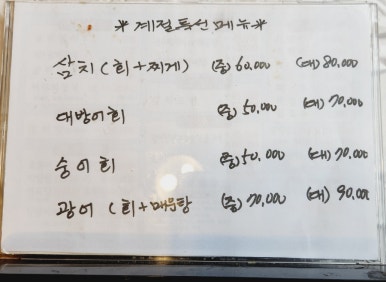 *계절특선메뉴*
삼치(회+찌게) (중) 60,000 (대) 80,000
대방어회 (중) 50,000 (대) 70,000
숭어회 (중) 50,000 (대) 70,000
광어 (회+매운탕 (중) 70,000 (대) 90,000